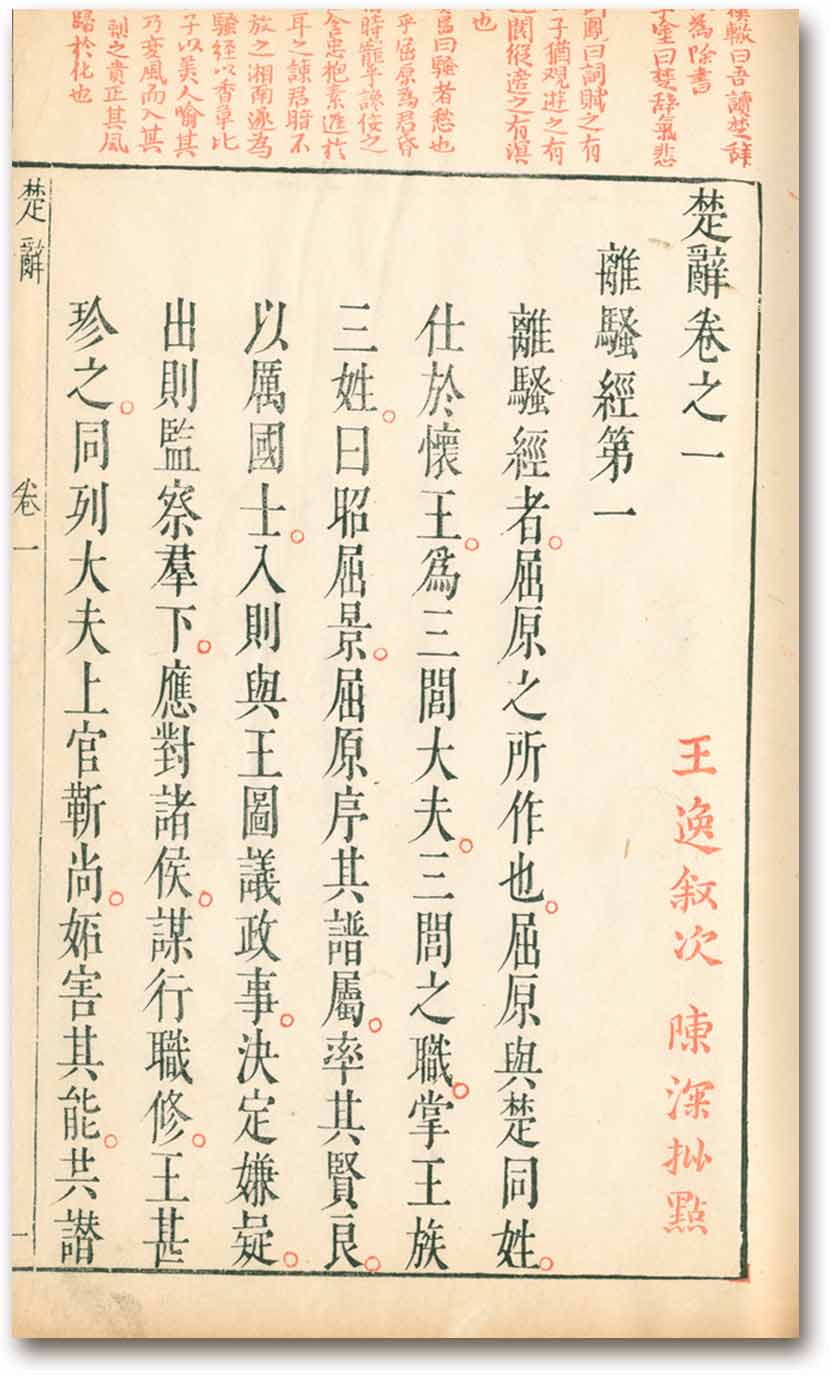 轍曰吾讀楚辭
為除書
堂曰楚辭氣悲
鳳曰詞賦之有
子猶觀遊之有
闊縱遊之有溟
也
曰騷者愁也
乎屈原為君昏
時寵乎讒佞之
含忠抱素進於
耳之諫君暗不
放之湘南遂為
騷經以香草比
子以美人喻其
乃變風而入其
刺之貴正其風
歸於化也
楚辭卷之一
王逸叙次 陳深批點
離騷經第一
離騷經者。屈原之所作也。屈原與楚同姓。
仕於懷王。為三閭大夫。三閭之職。掌王族
三姓。曰昭屈景。屈原序其譜屬。率其賢良。
以厲國士。入則與王圖議政事。決定嫌疑。
出則監察羣下。應對諸侯。謀行職修。王甚
珍之。同列大夫上官靳尚。妬害其能。共譖
楚辭
卷一
一